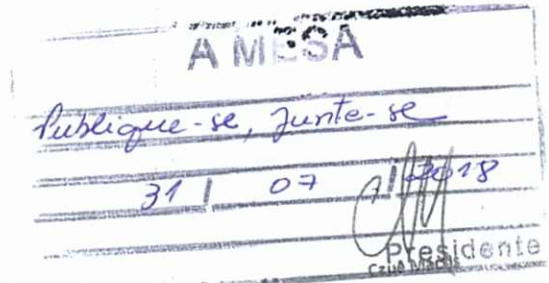 A MESA
Publique-se, Junte-se
31 / 07 / 2018
Presidente